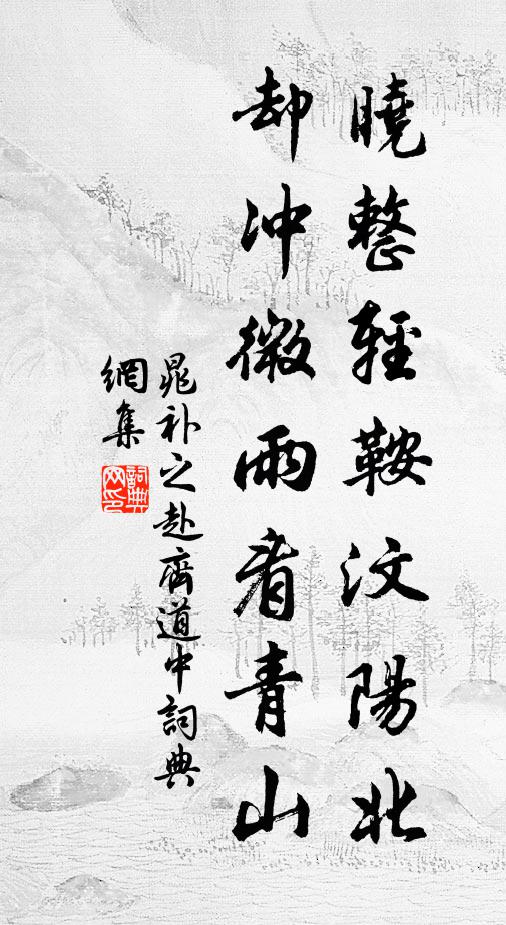 曉整輕鞍汶陽北
却冲微雨看青山
晁补之赴齊道中詞典
網集
詞典
网印